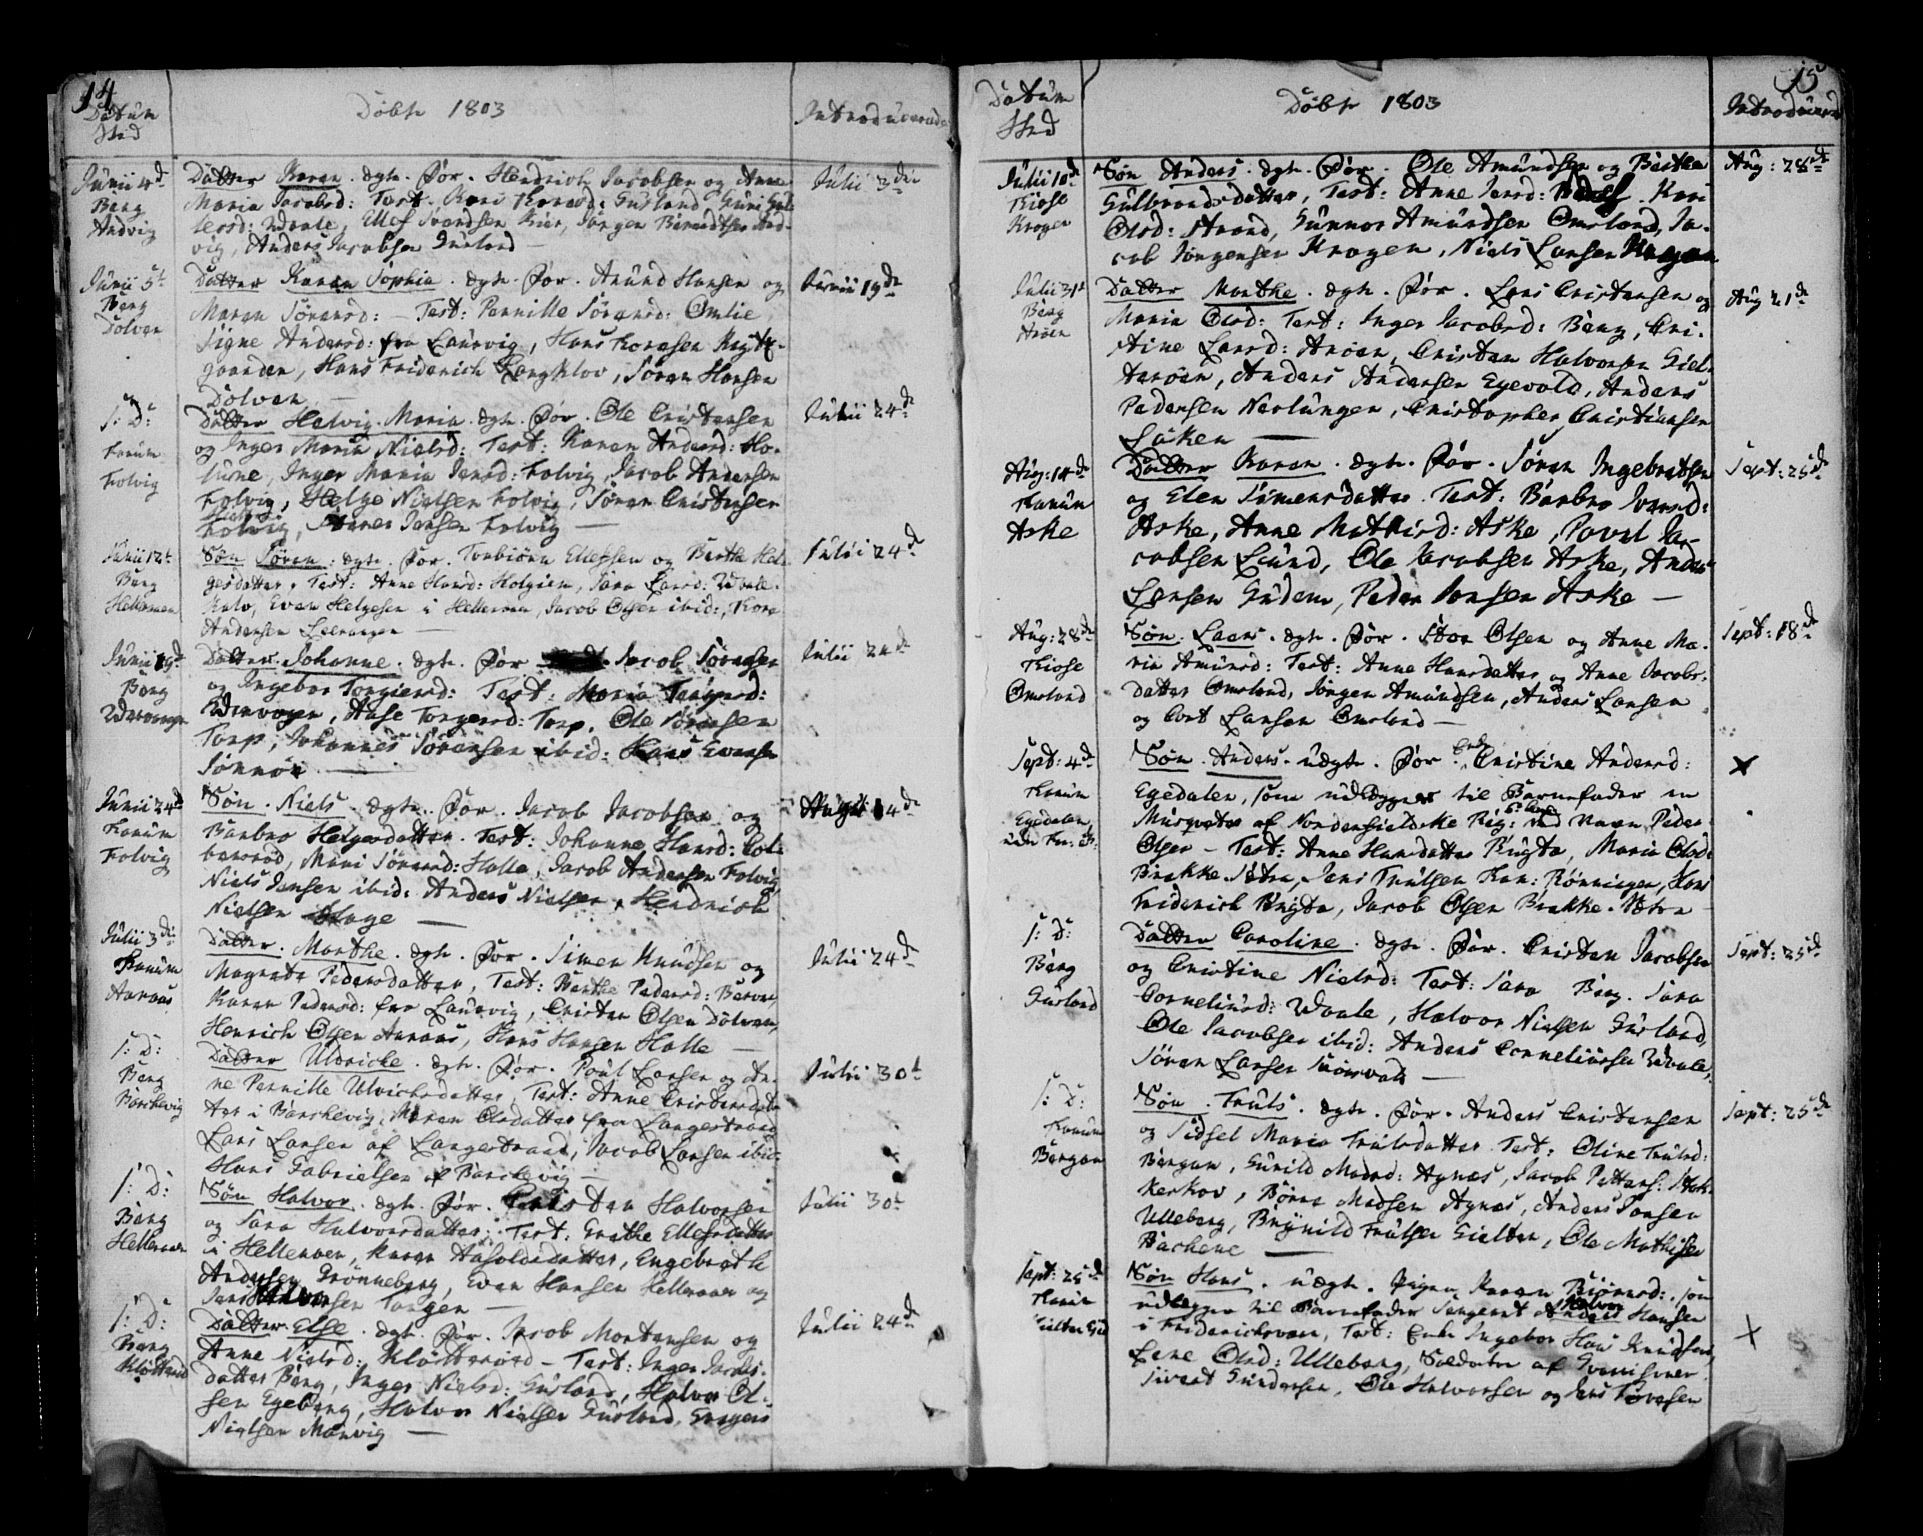 14
Datum
Sted
Döbte 1803
Introducerede
Junii 4de
Berg
Andvig
Datter Karen. ægte. For. Hendrich Jacobsen og Anne
Maria Jacobsd: Test. Kari Gusland, Guri
Udvale, Ellef Svendsen, Jörgen Berndtsen And-
vig, Anders Jacobsen Gusland —
Julii 3die
Junii 5t
Berg
Dolven
Datter Karen Sophia. ægte. For. Amund Hansen og
Maren Sörensd: — Test: Pernille Sörensd: Omlie,
Signe Andersd: fra Laurvig, Hans
gaarden, Hans Friderich Langklov, Sören Hansen
Dolven —
Junii 19de
s: D:
Tanum
Folvig
Datter Helvig Maria. ægte. For. Ole Cristensen
og Inger Maria Nielsd: Test: Karen Andersd: Ho-
Inger Maria Jensd: Folvig, Jacob Andersen
Folvig, Helge Nielsen Folvig, Sören Cristensen
Jensen Folvig —
Julii 24de
Junii 12t
Berg
Hellernen
Sön Sören. ægte. For. Torbiörn Ellefsen og Berthe Hel-
gesdatter, Test: Anne Hansd: Holgien, Sara Larsd: Udvale.
Even Helgesen i Hellernen, Jacob Olsen ibid:, Thore
Andersen
Julii 24de
Junii 19de
Berg
Datter. Johanne. ægte. For Jacob Sörensen
og Ingebor Torgiersd: Test: Maria
Aase Torgersd: Torp, Ole Sörensen
Torp, Johannes Sörensen ibid: Hans Evensen
Julii 24de
Junii 24de
Tanum
Folvig
Sön. Niels. ægte. For. Jacob Jacobsen og
Barbro Helgesdatter. Test: Johanne Hansd:
Mari Sörensd: Halle, Jacob Andersen Folvig,
Niels Jensen ibid: Anders Nielsen, Hendrich
Nielsen Hage —
August 14de
Julii 3die
Tanum
Aaraas
Datter. Marthe. ægte. For. Simen Knudsen og
Magrete Pedersdatter, Test: Berthe Pedersd:
Karen Pedersd: fra Laurvig, Cristen Olsen Dolven,
Henrich Olsen Aaraas, Hans Hansen Halle —
Julii 24de
s: D:
Berg
Barchevig
Datter Uldriche. ægte. For. Poul Larsen og An-
ne Pernille Ulrichsdatter, Test: Anne Cristensdat-
ter i Barchevig, Maren Olsdatter fra Langestrand
Lars Larsen af Langestrand, Jacob Larsen ibid:
Hans Gabrielsen af Barchevig —
Julii 30t
s: D:
Berg
Hellernen
Sön Halvor. ægte. For. Cristen Halvorsen
og Sara Halvorsdatter. Test: Grethe Ellefsdatter
i Hellernen, Karen Engebreth
Andersen Grönneberg, Even Hansen Hellernen og
Halvorsen Tangen —
Julii 30t
s: D:
Berg
Datter. Else. ægte. For. Jacob Mortensen og
Anne Nielsd: — Test: Inger Jacobs-
datter Berg, Inger Nielsd: Gusland, Halvor Ol-
sen Egeberg, Halvor Nielsen Gusland, Gregers
Nielsen Manvig —
Julii 24de
15
Datum
Sted
Döbte 1803
Introducered
Julii 10de
Kiose
Krogen
Sön Anders. ægte. For. Ole Amundsen og Berthe
Gulbrandsdatter, Test: Anne Kari
Olsd: Strand, Gunnor Amundsen Omsland, Ja-
cob Jörgensen Krogen, Niels Larsen Krogen
Aug: 28de
Julii 31t
Berg
Aröen
Datter Marthe. ægte. For. Lars Cristensen og
Maria Olsd: Test: Inger Jacobsd: Berg, Cri-
stine Larsd: Aröen, Cristen Halvorsen Giel-
teröen, Anders Andersen Egevold, Anders
Pedersen Nerlungen, Christopher Cristiansen
Löken —
Aug 21de
Aug: 14de
Tanum
Aske
Datter Karen. ægte. For. Sören Ingebretsen
og Elen Simensdatter. Test: Barbro Iversd:
Aske, Anne Mathisd: Aske, Povel Ja-
cobsen Lund, Ole Jacobsen Aske, Anders
Larsen Gudem, Peder Jonsen Aske —
Sept: 25de
Aug: 28de
Kiose
Omsland
Sön. Laers. ægte. For. Olsen og Anne Ma-
ria Amundsd: Test: Anne Hansdatter og Anne Jacobs-
datter Omsland, Jörgen Amundsen, Anders Larsen
og Cort Larsen Omsland —
Sept: 18de
Sept: 4de
Tanum
Egedalen
Sön. Anders. uægte. For Cristine Andersd:
Egedalen, som udlægger til Barnefader en
Musqueteer af Nordenfieldske Reg: ved Navn Peder
Olsen — Test: Anne Hansdatter Brigta, Maria Olsd:
Brække Sætre, Jens Trulsen Tan: Rönningen, Hans
Friderich Brigta, Jacob Olsen Brække Sætre
x
s: D:
Berg
Gusland
Datter Caroline. ægte. For. Cristen Jacobsen
og Cristine Nielsd: Test: Sara Berg. Sara
Corneliusd: Udvale, Halvor Nielsen Gusland,
Ole Jacobsen ibid: Anders Corneliussen Udvale,
Sören Larsen
Sept: 25de
s: D:
Tanum
Bergan
Sön. Truls. ægte. For. Anders Cristensen
og Sidsel Maria Trulsdatter. Test: Oline Trulsd:
Bergan, Gunild Madsd: Agnes, Jacob
Börre Madsen Agnes, Anders Jonsen
Ulleberg, Brynild Trulsen Gielter, Ole Mathisen
Bachene —
Sept: 25de
Sept: 25de
Tanum
Sön Hans. uægte. Pigen Karen Biörnsd: som
udlægger til Barnefader Sergeant Hansen
i Friderichsværn, Test: Enke Ingebor
Lene Olsd: Ulleberg, Soldater af
Sivert Gundersen, Ole Halvorsen og
x